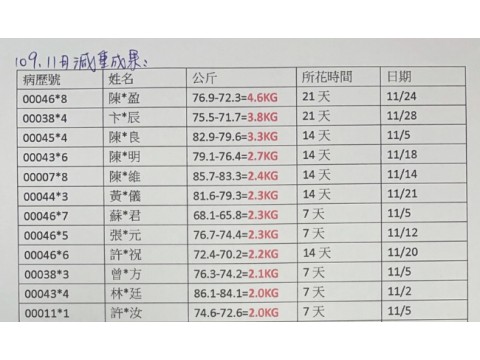 109.11月減重成果:
病歷號 姓名 公斤 所花時間 日期
00046*8 陳*盈 76.9-72.3=4.6KG 21 天 11/24
00038*4 卞*辰 75.5-71.7=3.8KG 21 天 11/28
00045*4 陳*良 82.9-79.6=3.3KG 14 天 11/5
00043*6 陳*明 79.1-76.4=2.7KG 14 天 11/18
00007*8 陳*維 85.7-83.3=2.4KG 14 天 11/14
00044*3 黃*儀 81.6-79.3=2.3KG 14 天 11/21
00046*7 蘇*君 68.1-65.8=2.3KG 7 天 11/5
00046*5 張*元 76.7-74.4=2.3KG 7 天 11/12
00046*6 許*祝 72.4-70.2=2.2KG 14 天 11/20
00038*3 曾*方 76.3-74.2=2.1KG 7 天 11/5
00043*4 林*廷 86.1-84.1=2.0KG 7 天 11/2
00011*1 許*汝 74.6-72.6=2.0KG 7 天 11/5